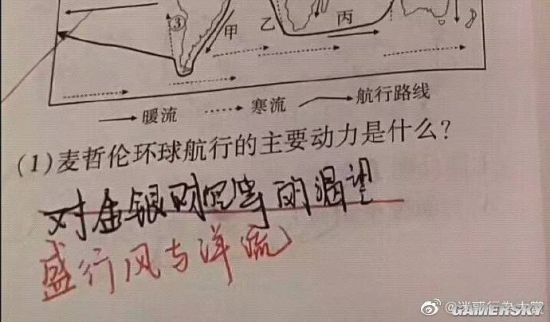 ③ 甲 乙 丙
暖流 寒流 航行路线
(1)麦哲伦环球航行的主要动力是什么?
对金银财宝等的渴望
盛行风与洋流
GAMERSKY